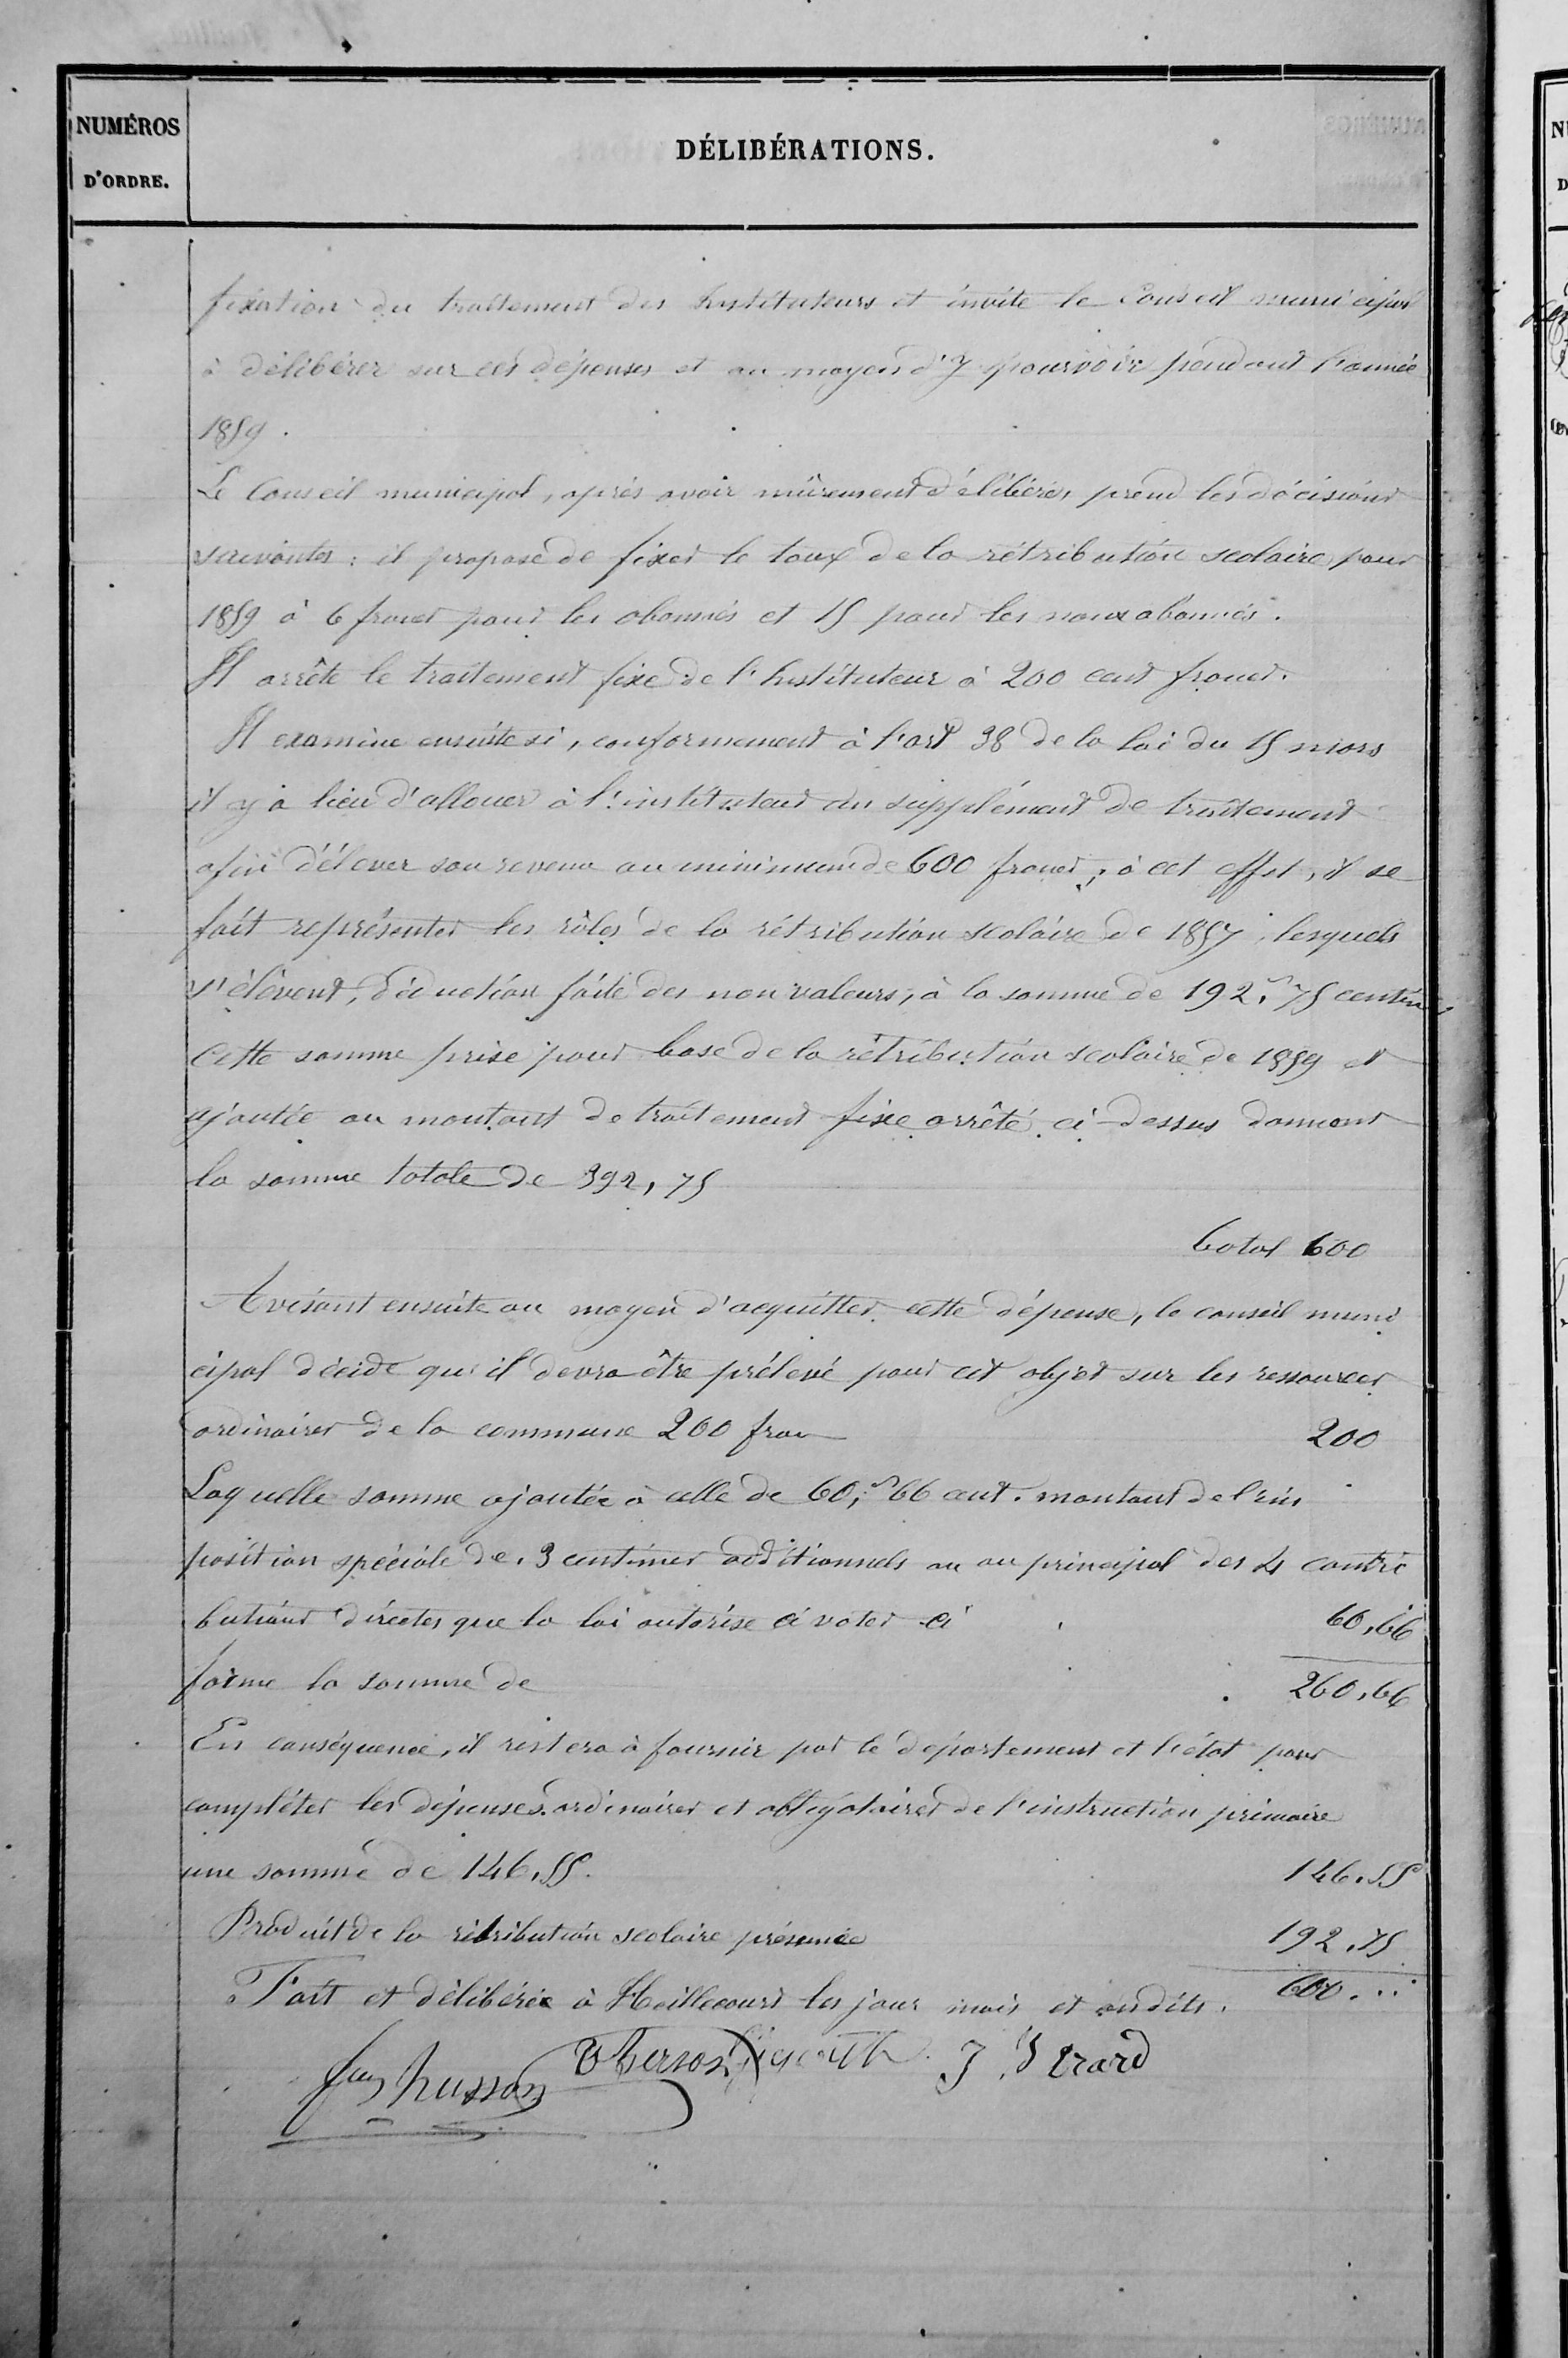 NUMÉROS
D'ORDRE.
DÉLIBÉRATIONS.
fixation du traitement des Instituteurs et invite le Conseil municipal
à délibérer sur ces dépenses et au moyen d'y pourvoir pendant l'année
1859.
Le Conseil municipal, après avoir mûrement délibéré, prend les décisions
suivantes : il propose de fixer le taux de la rétribution scolaire pour
1859 à 6 francs pour les abonnés et 15 pour les non abonnés.
Il arrête le traitement fixe de l'Instituteur à 200 cent francs.
Il examine ensuite si, conformement à l'art 38 de la loi du 15 mars
il y a lieu d'allouer à l'instituteur un supplément de traitement
afin d'élever son revenu au minimum de 600 francs ; à cet effet, il se
fait représenter les rôles de la rétribution scolaire de 1857, lesquels
s'élèvent, déduction faite des non valeurs, à la somme de 192,f 75 centimes
Cette somme prise pour base de la rétribution scolaire de 1859 et
ajoutée au montant de traitement fixe arrêté ci-dessus donnent
la somme totale de 392,75
Total 600
Avisant ensuite au moyen d'acquitter cette dépense, le conseil muni
cipal décide qu'il devra être prélevé pour cet objet sur les ressources
ordinaires de la commune 200 fran 200
Laquelle somme ajoutée à celle de 60,f 66 cent. montant de l'im
position spéciale de 3 centimes additionnels au au principal des 4 contri
butions directes que la loi autorise à voter ci 60,66
forme la somme de 260,66
En conséquence, il restera à fournir par le département et l'état pour
compléter les dépenses ordinaires et obligatoires de l'instruction primaire
une somme de 146,55. 146.55
Produit de la rétribution scolaire présumée 192.75
Fait et délibérée à Heillecourt les jour mois et an dits. 600...
husson Thersos J. S Erard